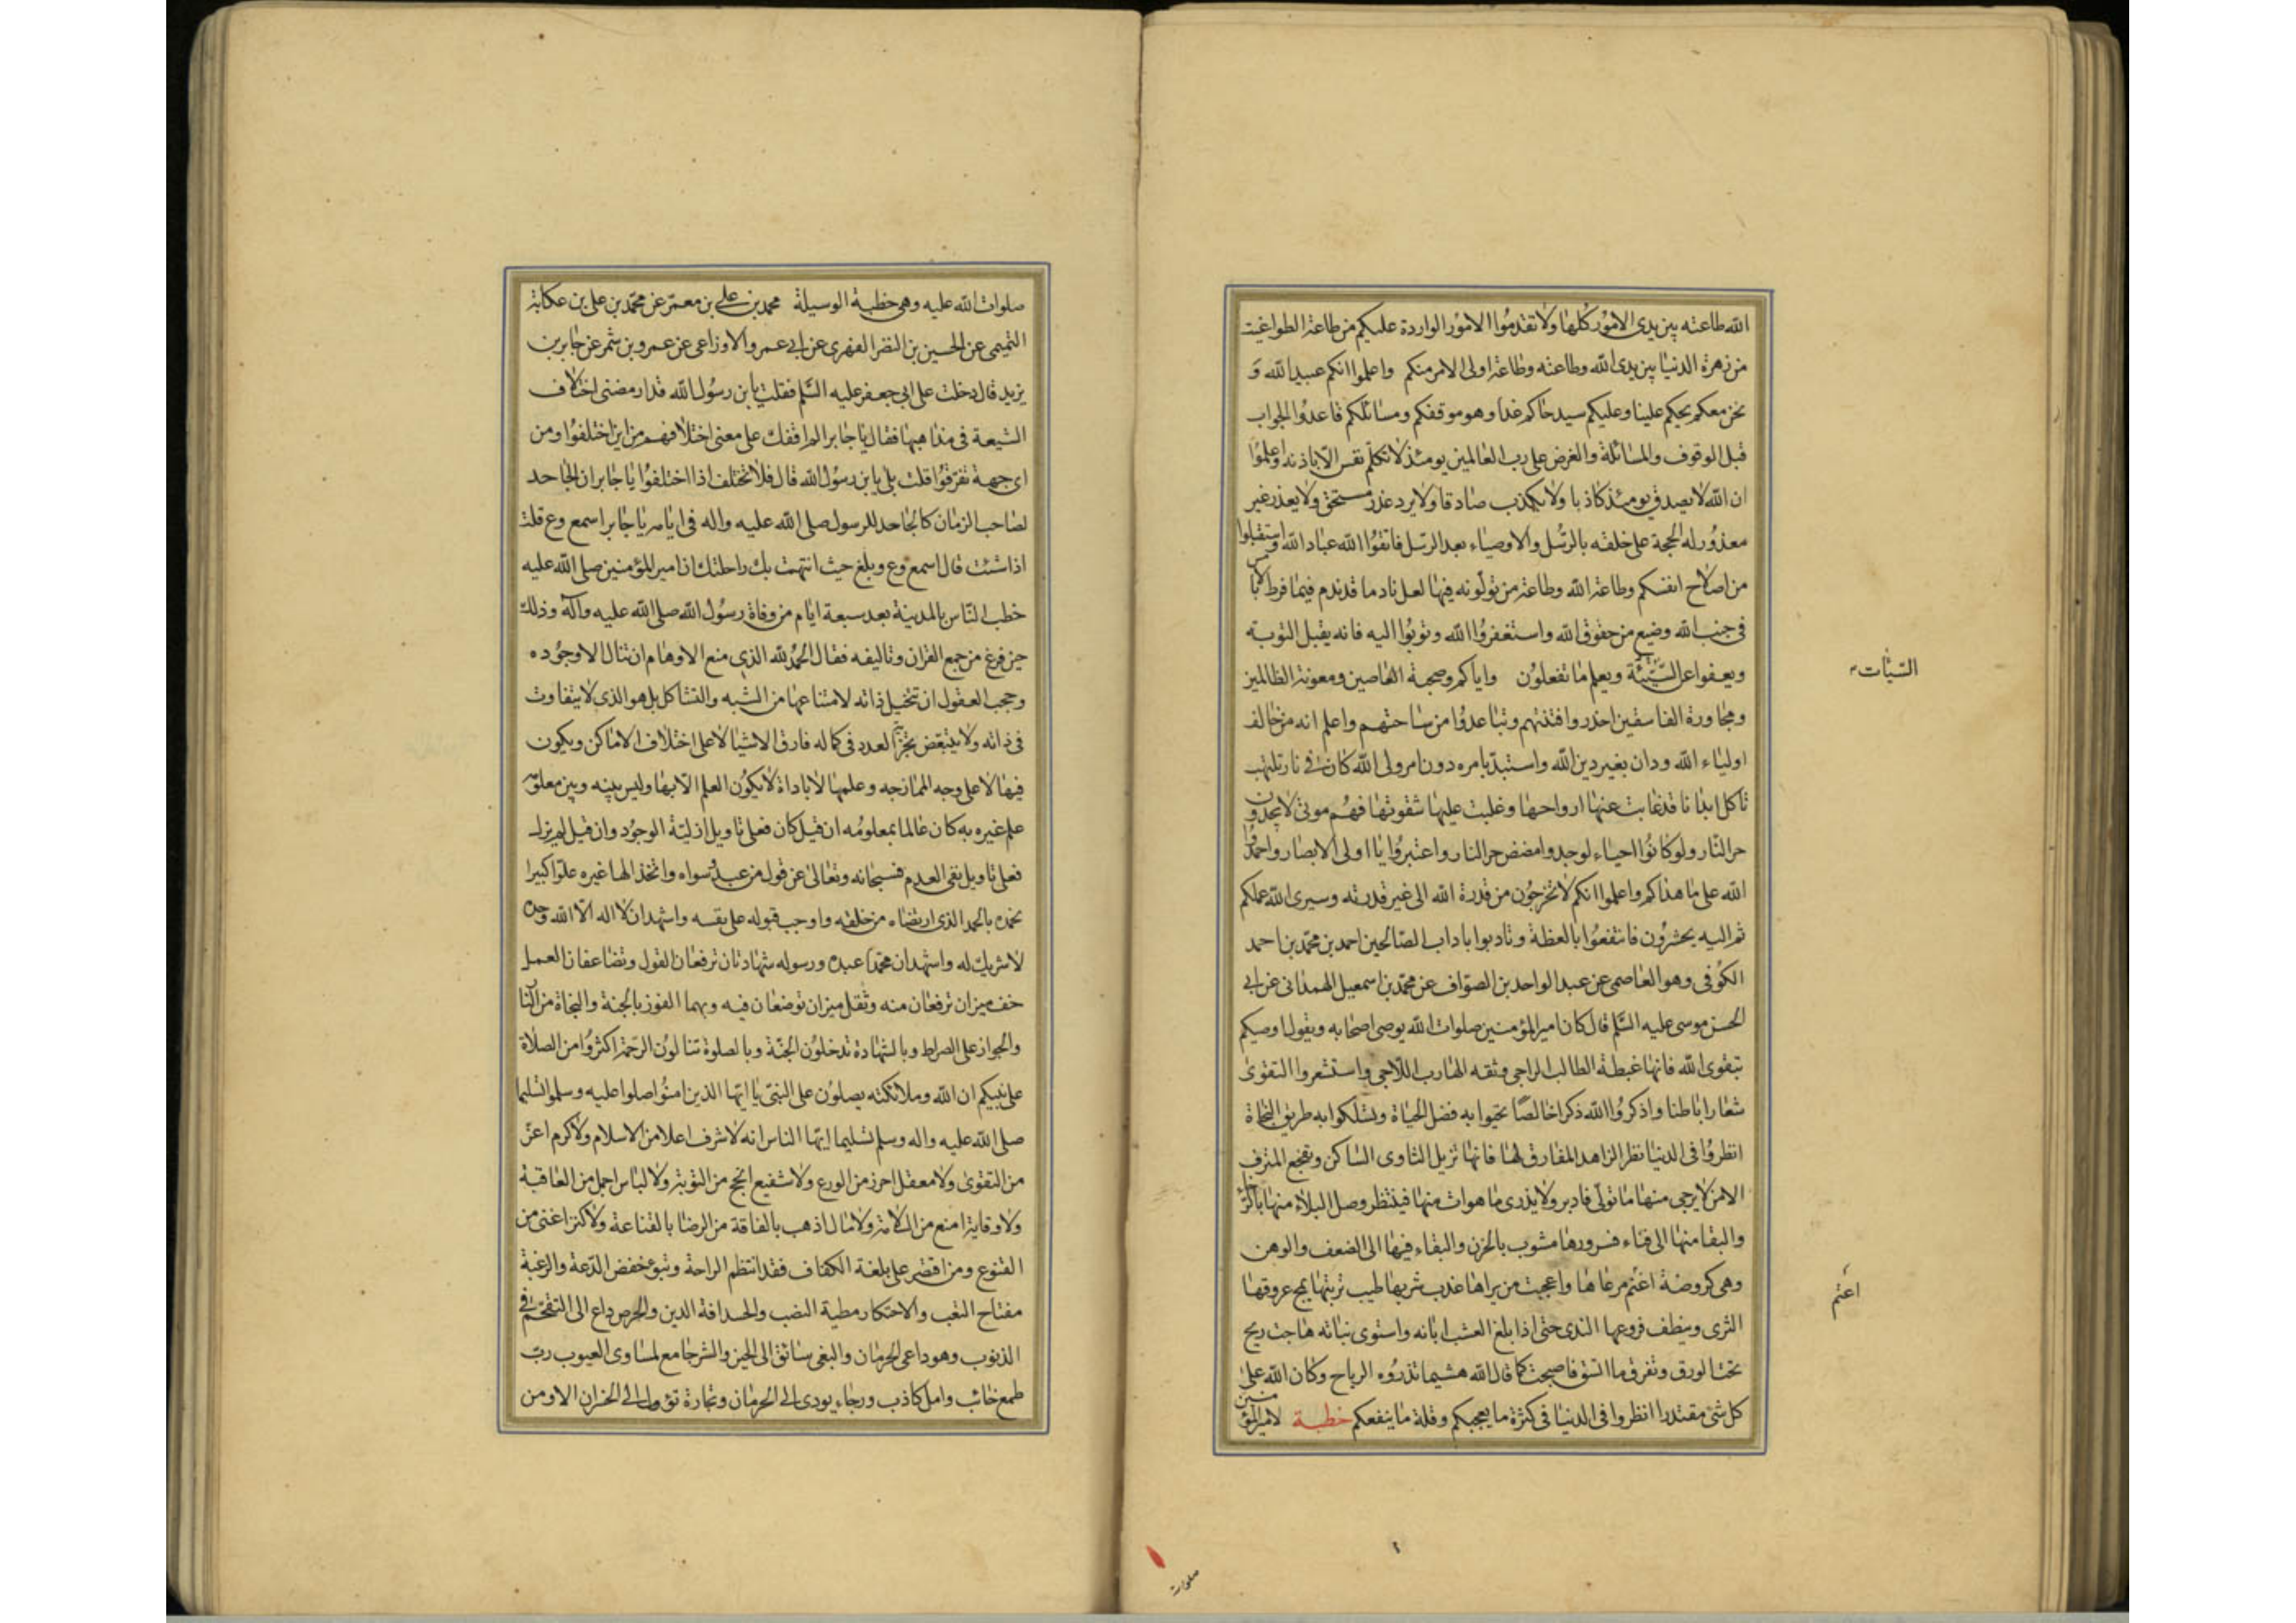 الله طاعته بين يدى الامور كلها ولا تقدموا الامور الواردة عليكم من طاعة الطواغيت
من زهرة الدنيا بين يدى الله وطاعته وطاعة اولى الامر منكم واعلموا انكم عبيد الله و
نحن معكم يحكم علينا وعليكم سيد حاكم غدا وهو موقفكم ومسائلكم فاعدوا الجواب
قبل الوقوف والمسائلة والعرض على رب العالمين يومئذ لا تكلم نفس الا باذنه واعلموا
ان الله لا يصدق يومئذ كاذبا ولا يكذب صادقا ولا يرد عذر مستحق ولا يعذر غير
معذور له الحجة على خلقه بالرسل والاوصياء بعد الرسل فاتقوا الله عباد الله واستقبلوا
من اصلاح انفسكم وطاعة الله وطاعة من تولونه فيها لعل نادما قد ندم فيما فرط بالامس
فى جنب الله وضيع من حقوق الله واستغفروا الله وتوبوا اليه فانه يقبل التوبة
ويعفوا عن السيئة ويعلم ما تفعلون واياكم وصحبة العاصين ومعونة الظالمين
السيئات
ومجاورة الفاسقين احذروا فتنتهم وتباعدوا من ساحتهم واعلم انه من خالف
اولياء الله ودان بغير دين الله واستبد بامره دون امر ولى الله كان فى نار تلتهب
تاكل ابدانا قد غابت عنها ارواحها وغلبت عليها شقوتها فهم موتى لا يجدون
حر النار ولو كانوا احياء لوجدوا مضض حر النار واعتبروا يا اولى الابصار واحمدوا
الله على ما هداكم واعلموا انكم لا تخرجون من قدرة الله الى غير قدرته وسيرى الله عملكم
ثم اليه يحشرون فانتفعوا بالعظة وتادبوا باداب الصالحين احمد بن محمد بن احمد
الكوفى وهو العاصمى عن عبد الواحد بن الصواف عن محمد بن اسمعيل الهمدانى عن ابى
الحسن موسى عليه السلم قال كان امير المؤمنين صلوات الله يوصى اصحابه ويقول اوصيكم
بتقوى الله فانها غبطة الطالب الراجى وثقه الهارب اللاجى واستشعروا التقوى
شعارا باطنا واذكروا الله ذكرا خالصا تحيوا به فضل الحياة وتسلكوا به طريق النجاة
انظروا فى الدنيا نظر الزاهد المفارق لها فانها تزيل الثاوى الساكن وتفجع المترف
الامن لا يرجى منها ما تولى فادبر ولا يدرى ما هو ات منها فينتظر وصل البلاء منها بالرخا
والبقا منها الى فناء فسرورها مشوب بالحزن والبقاء فيها الى الضعف والوهن
وهى كروضة اغتم مرعاها واعجبت من يراها عذب شربها طيب تربتها يمج عروقها
اعتم
الثرى وينطف فروعها الندى حتى اذا بلغ العشب ابانه واستوى نباته هاجت ريح
تحت الورق وتفرق ما اتسق فاصبحت كما قال الله هشيما تذروه الرياح وكان الله على
كل شئ مقتدرا انظروا فى الدنيا فى كثرة ما يعجبكم وقلة ما ينفعكم خطبة لامير المؤمنين
صلوات
صلوات الله عليه وهى خطبة الوسيلة محمد بن على بن معمر عن محمد بن على بن عكابة
التميمى عن الحسين بن النضر الفهرى عن ابى عمرو الاوزاعى عن عمرو بن شمر عن جابر بن
يزيد قال دخلت على ابى جعفر عليه السلم فقلت يابن رسول الله قد ارمضنى اختلاف
الشيعة فى مذاهبها فقال يا جابر الم اقفك على معنى اختلافهم من اين اختلفوا ومن
اى جهة تفرقوا قلت بلى يابن رسول الله قال فلا تختلف اذا اختلفوا يا جابر ان الجاحد
لصاحب الزمان كالجاحد للرسول صلى الله عليه واله فى ايامه يا جابر اسمع وع قلت
اذا شئت قال اسمع وع وبلغ حيث انتهت بك راحلتك ان امير المؤمنين صلى الله عليه
خطب الناس بالمدينة بعد سبعة ايام من وفاة رسول الله صلى الله عليه وآله وذلك
حين فرغ من جمع القران وتاليفه فقال الحمد لله الذى منع الاوهام ان تنال الا وجوده
وحجب العقول ان تتخيل ذاته لامتناعها من الشبه والتشاكل بل هو الذى لا يتفاوت
فى ذاته ولا يتبعض بتجزئة العدد فى كماله فارق الاشيا لا على اختلاف الاماكن ويكون
فيها لا على وجه الممازجه وعلمها لا باداة لا يكون العلم الا بها وليس بينه وبين معلومه
علم غيره به كان عالما بمعلومه ان قيل كان فعلى تاويل ازلية الوجود وان قيل لم يزل
فعلى تاويل نفى العدم فسبحانه وتعالى عن قول من عبد سواه واتخذ الها غيره علوا كبيرا
نحمده بالحمد الذى ارتضاه من خلقه واوجب قبوله على نفسه واشهد ان لا اله الا الله وحده
لا شريك له واشهد ان محمدا عبده ورسوله شهادتان ترفعان القول وتضاعفان العمل
خف ميزان ترفعان منه وثقل ميزان توضعان فيه وبهما الفوز بالجنة والنجاة من النا
والجواز على الصراط وبالشهادة تدخلون الجنة وبالصلوة تنالون الرحمة اكثروا من الصلاة
على نبيكم ان الله وملائكته يصلون على النبى يا ايها الذين امنوا صلوا عليه وسلموا تسليما
صلى الله عليه واله وسلم تسليما ايها الناس انه لا شرف اعلا من الاسلام ولا كرم اعز
من التقوى ولا معقل احرز من الورع ولا شفيع انجح من التوبة ولا لباس اجمل من العاقبة
ولا وقاية امنع من السلامة ولا مال اذهب بالفاقة من الرضا بالقناعة ولا كنز اغنى من
القنوع ومن اقتصر على بلغة الكفاف فقد انتظم الراحة وتبوء خفض الدعة والرغبة
مفتاح التعب والاحتكار مطية النصب والحسد افة الدين والحرص داع الى التقحم فى
الذنوب وهو داعى الحرمان والبغى سائق الى الحين والشر جامع لمساوى العيوب رب
طمع خائب وامل كاذب ورجاء يودى الى الحرمان وتجارة تؤول الى الخسران الا ومن